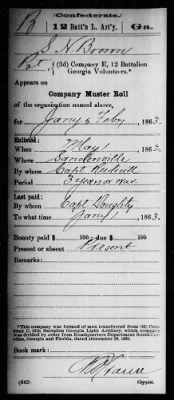 (Confederate.)
B 12 Batt'n L. Art'y. Ga.
S N Brown
Pvt, (3d) Company E, 12 Battalion
Georgia Volunteers.*
Appears on
Company Muster Roll
of the organization named above,
for Jany & Feby, 1863.
Enlisted:
When May 1, 1862
Where Sandersville
By whom Capt Rudisill
Period 3 years or war
Last paid:
By whom Capt Doughty
To what time Jany 1, 1863.
Bounty paid $ 100; due $ 100
Present or absent Present
Remarks:
*This company was formed of men transferred from (2d) Company
Georgia Light Artillery, which company
was divided by order from Headquarters Department South Carolina,
Georgia and Florida, dated December 18, 1862.
Book mark:
(642) Copyist.